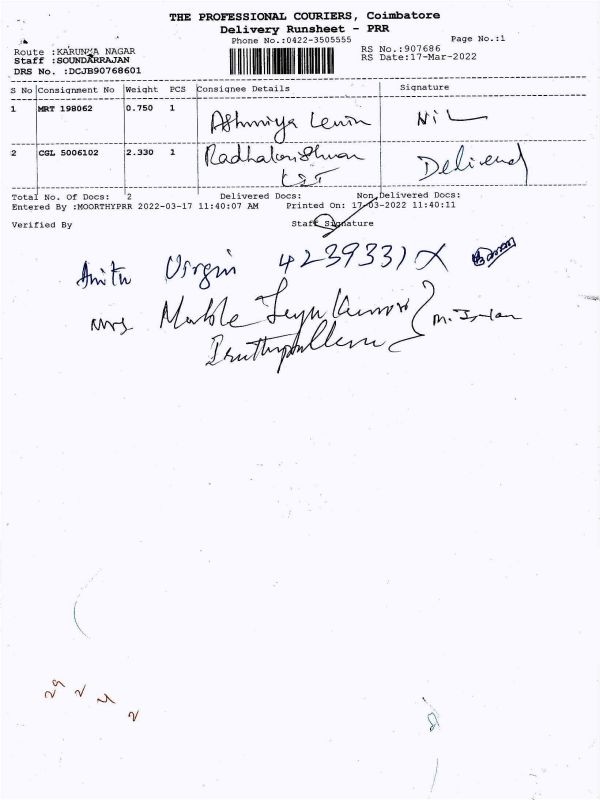 THE PROFESSIONAL COURIERS, Coimbatore
Delivery Runsheet - PRR
Phone No.:0422-3505555
Page No.:1
Route :KARUNYA NAGAR
Staff :SOUNDARRAJAN
DRS No. :DCJB90768601
RS No.:907686
RS Date:17-Mar-2022
S No Consignment No Weight PCS Consignee Details Signature
1 MRT 198062 0.750 1 Ashmiya Lenin Nil
2 CGL 5006102 2.330 1 Radhakrishnan Delivered
Total No. Of Docs: 2 Delivered Docs: Non Delivered Docs:
Entered By :MOORTHYPRR 2022-03-17 11:40:07 AM Printed On: 17-03-2022 11:40:11
Verified By Staff Signature
Anitu Virgin 4239331X
Mrs